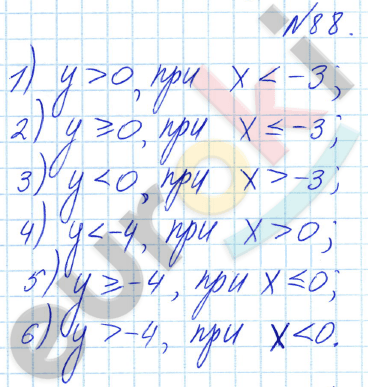 №88.
1) y > 0, при x < -3;
2) y ≥ 0, при x ≤ -3;
3) y < 0, при x > -3;
4) y < -4, при x > 0;
5) y ≥ -4, при x ≤ 0;
6) y > -4, при x < 0.
euroki